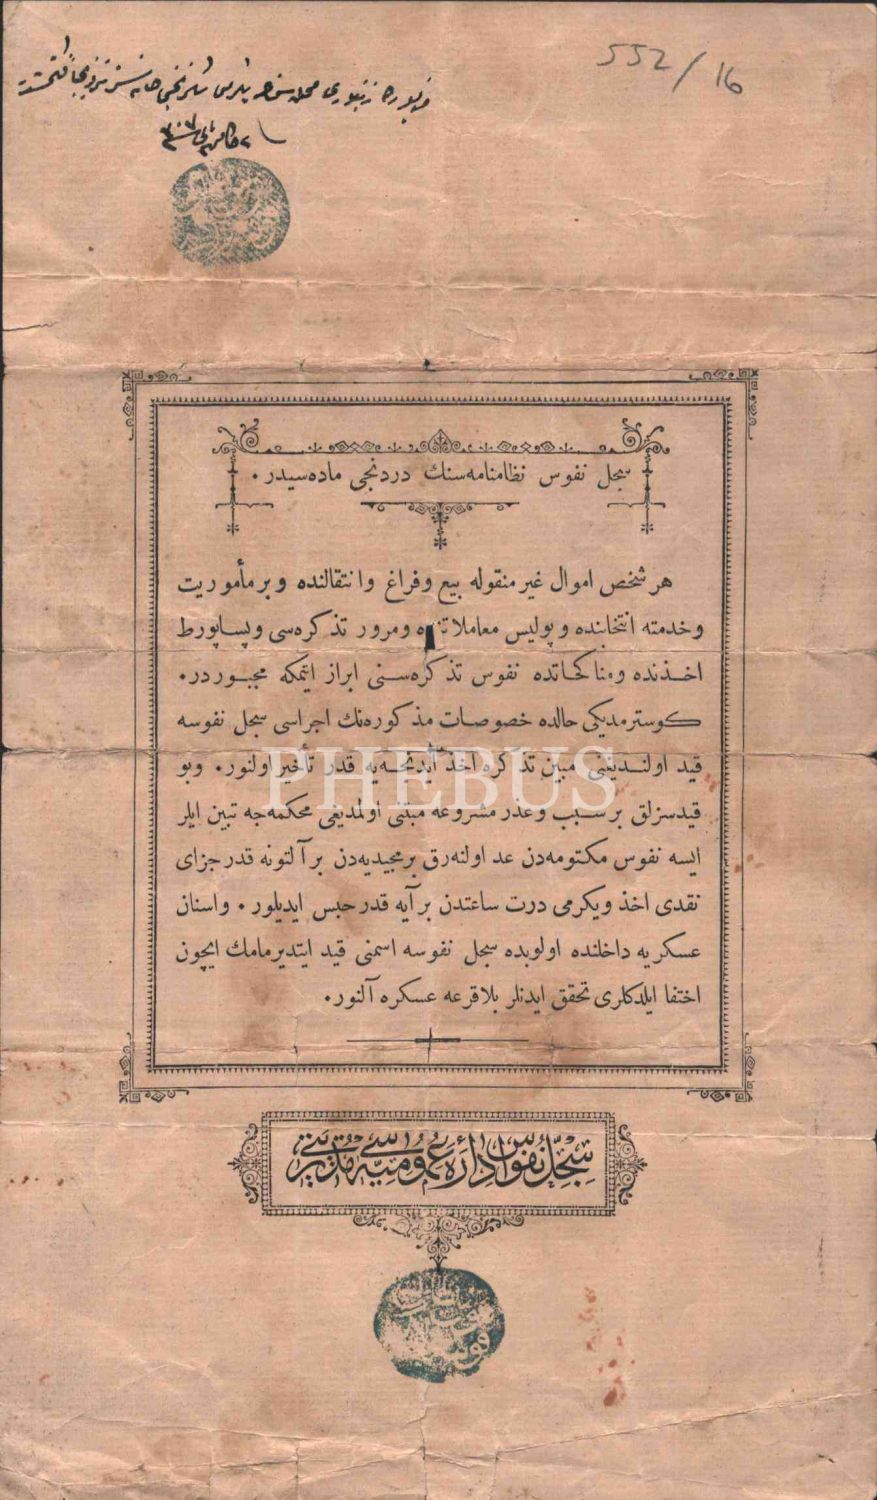 552/16
سجل نفوس نظامنامه‌سنك دردنجی ماده‌سیدر .
هر شخص اموال غیر منقوله بیع و فراغ و انتقالنده و بر مأموریت
و خدمته انتخابنده و پولیس معاملاتنده و مرور تذكره‌سی و پساپورط
اخذنده و مناكحاتده نفوس تذكره‌سنی ابراز ایتمكه مجبوردر .
كوسترمدیكی حالده خصوصات مذكوره‌نك اجراسی سجل نفوسه
قید اولندیغنی مبین تذكره اخذ ایدنجه‌یه قدر تأخیر اولنور . و بو
قیدسزلق بر سبب و عذر مشروعه مبتنی اولمدیغی محكمه‌جه تبین ایلر
ایسه نفوس مكتومه‌دن عد اولنه‌رق بر مجیدیه‌دن بر آلتونه قدر جزای
نقدی اخذ و یكرمی درت ساعتدن بر آیه قدر حبس ایدیلور . و اسنان
عسكریه داخلنده اولوبده سجل نفوسه اسمنی قید ایتدیرمامك ایچون
اختفا ایلدكلری تحقق ایدنلر بلا قرعه عسكره آلنور .
سجل نفوس اداره عمومیه‌سی مدیریتی
PHEBUS